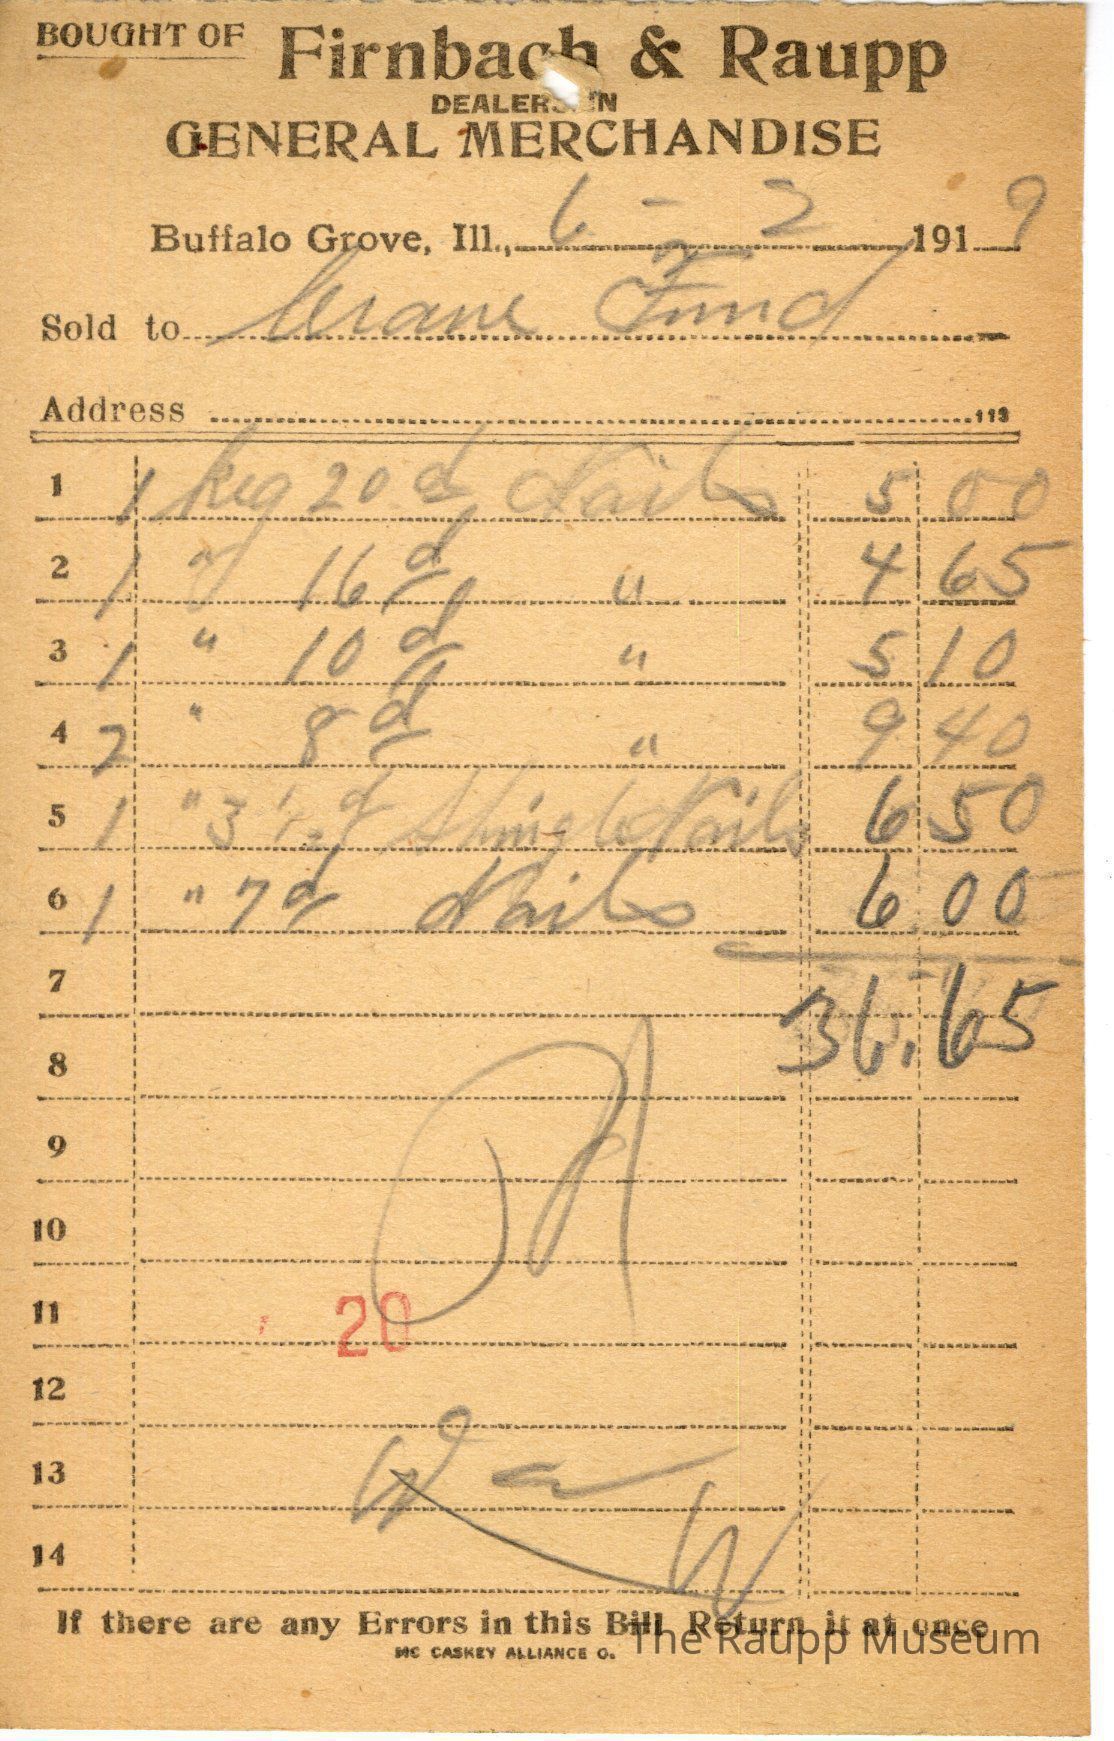 BOUGHT OF Firnbach & Raupp
DEALERS IN
GENERAL MERCHANDISE
Buffalo Grove, Ill., 6 - 2 1919
Sold to Crane Fund
Address 113
1 1 Keg 20 d Nails 5 00
2 1 " 16 d " 4 65
3 1 " 10 d " 5 10
4 2 " 8 d " 9 40
5 1 " 3 1/2 d Shingle Nails 6 50
6 1 " 7 d Nails 6 00
7 36.65
8
9
10
11 20
12
13
14
If there are any Errors in this Bill Return it at once
The Raupp Museum
MC CASKEY ALLIANCE O.